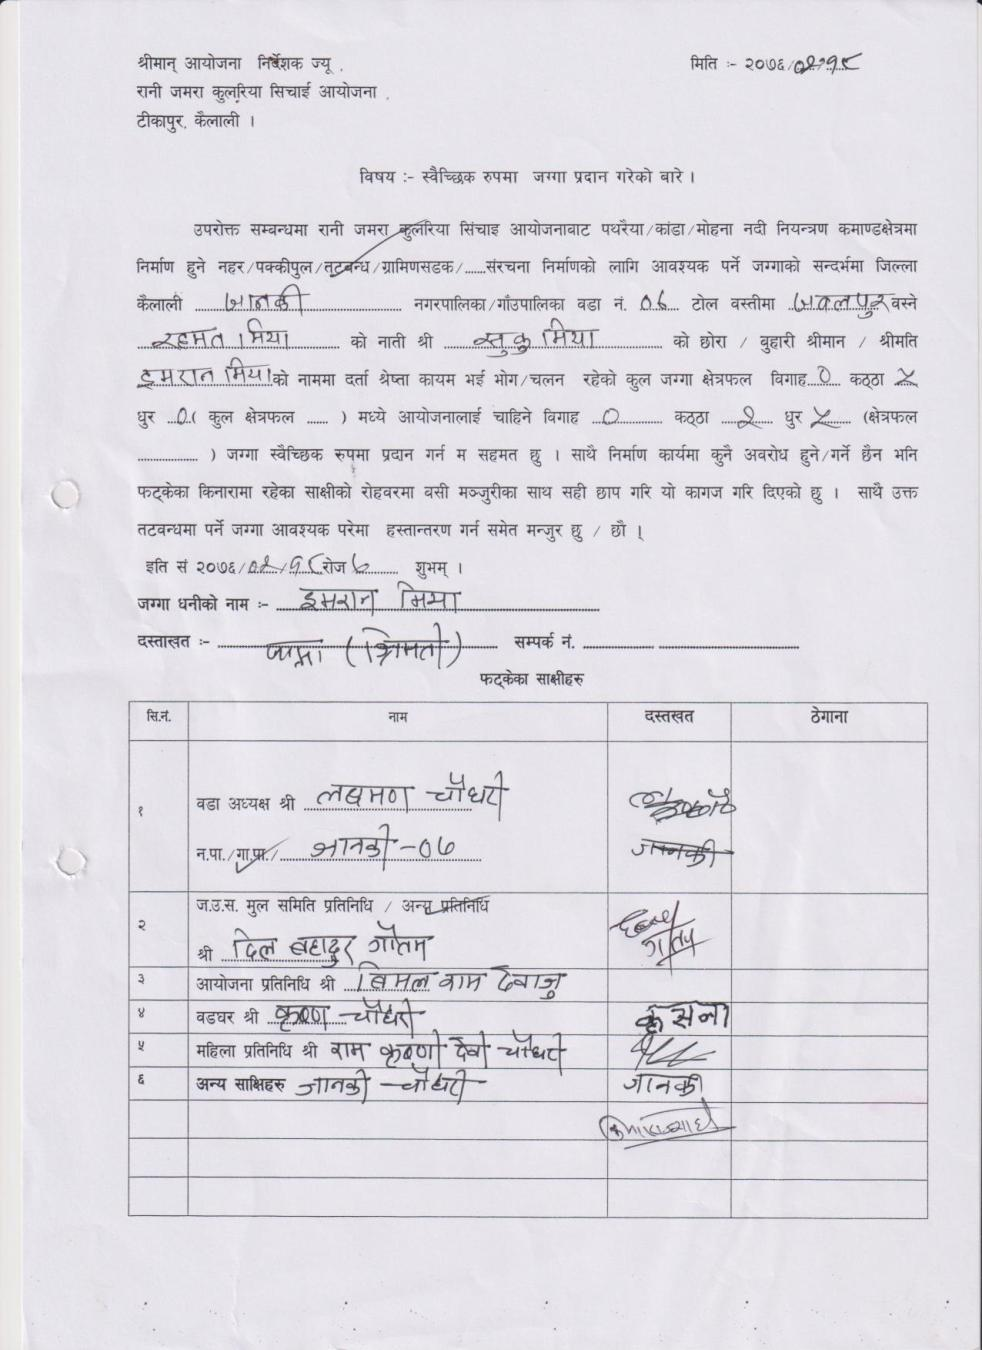 श्रीमान् आयोजना निर्देशक ज्यू ,
मिति :- २०७६/०२/१८
रानी जमरा कुलरिया सिचाई आयोजना ,
टीकापुर, कैलाली ।
विषय :- स्वैच्छिक रुपमा जग्गा प्रदान गरेको बारे ।
उपरोक्त सम्बन्धमा रानी जमरा कुलरिया सिंचाइ आयोजनाबाट पथरैया/कांडा/मोहना नदी नियन्त्रण कमाण्डक्षेत्रमा
निर्माण हुने नहर/पक्कीपुल/तटबन्ध/ग्रामिणसडक/......संरचना निर्माणको लागि आवश्यक पर्ने जग्गाको सन्दर्भमा जिल्ला
कैलाली जानकी नगरपालिका/गाँउपालिका वडा नं. ०७ टोल वस्तीमा जबलपुर वस्ने
रहमत मिया को नाती श्री सुकु मिया को छोरा / बुहारी श्रीमान / श्रीमति
इमरान मिया को नाममा दर्ता श्रेष्ता कायम भई भोग/चलन रहेको कुल जग्गा क्षेत्रफल विगाह ० कठ्ठा ५
धुर ० ( कुल क्षेत्रफल ...... ) मध्ये आयोजनालाई चाहिने विगाह ० कठ्ठा २ धुर ५ (क्षेत्रफल
.................. ) जग्गा स्वैच्छिक रुपमा प्रदान गर्न म सहमत छु । साथै निर्माण कार्यमा कुनै अवरोध हुने/गर्ने छैन भनि
फट्केका किनारामा रहेका साक्षीको रोहवरमा वसी मञ्जुरीका साथ सही छाप गरि यो कागज गरि दिएको छु । साथै उक्त
तटवन्धमा पर्ने जग्गा आवश्यक परेमा हस्तान्तरण गर्न समेत मन्जुर छु / छौ ।
इति सं २०७६/०२/१८ रोज ७ शुभम् ।
जग्गा धनीको नाम :- इमरान मिया
दस्ताखत :- (श्रिमती) सम्पर्क नं. ..................
फट्केका साक्षीहरु
सि.नं. नाम दस्तखत ठेगाना
१ वडा अध्यक्ष श्री लक्ष्मण चौधरी
न.पा./गा.पा./ जानकी-०७ जानकी
२ ज.उ.स. मुल समिति प्रतिनिधि / अन्य प्रतिनिधि
श्री दिल बहादुर गौतम
३ आयोजना प्रतिनिधि श्री बिमल राम देवाजु
४ वडघर श्री कृष्ण चौधरी कृसना
५ महिला प्रतिनिधि श्री राम कृष्णी देवी चौधरी
६ अन्य साक्षिहरु जानकी चौधरी जानकी